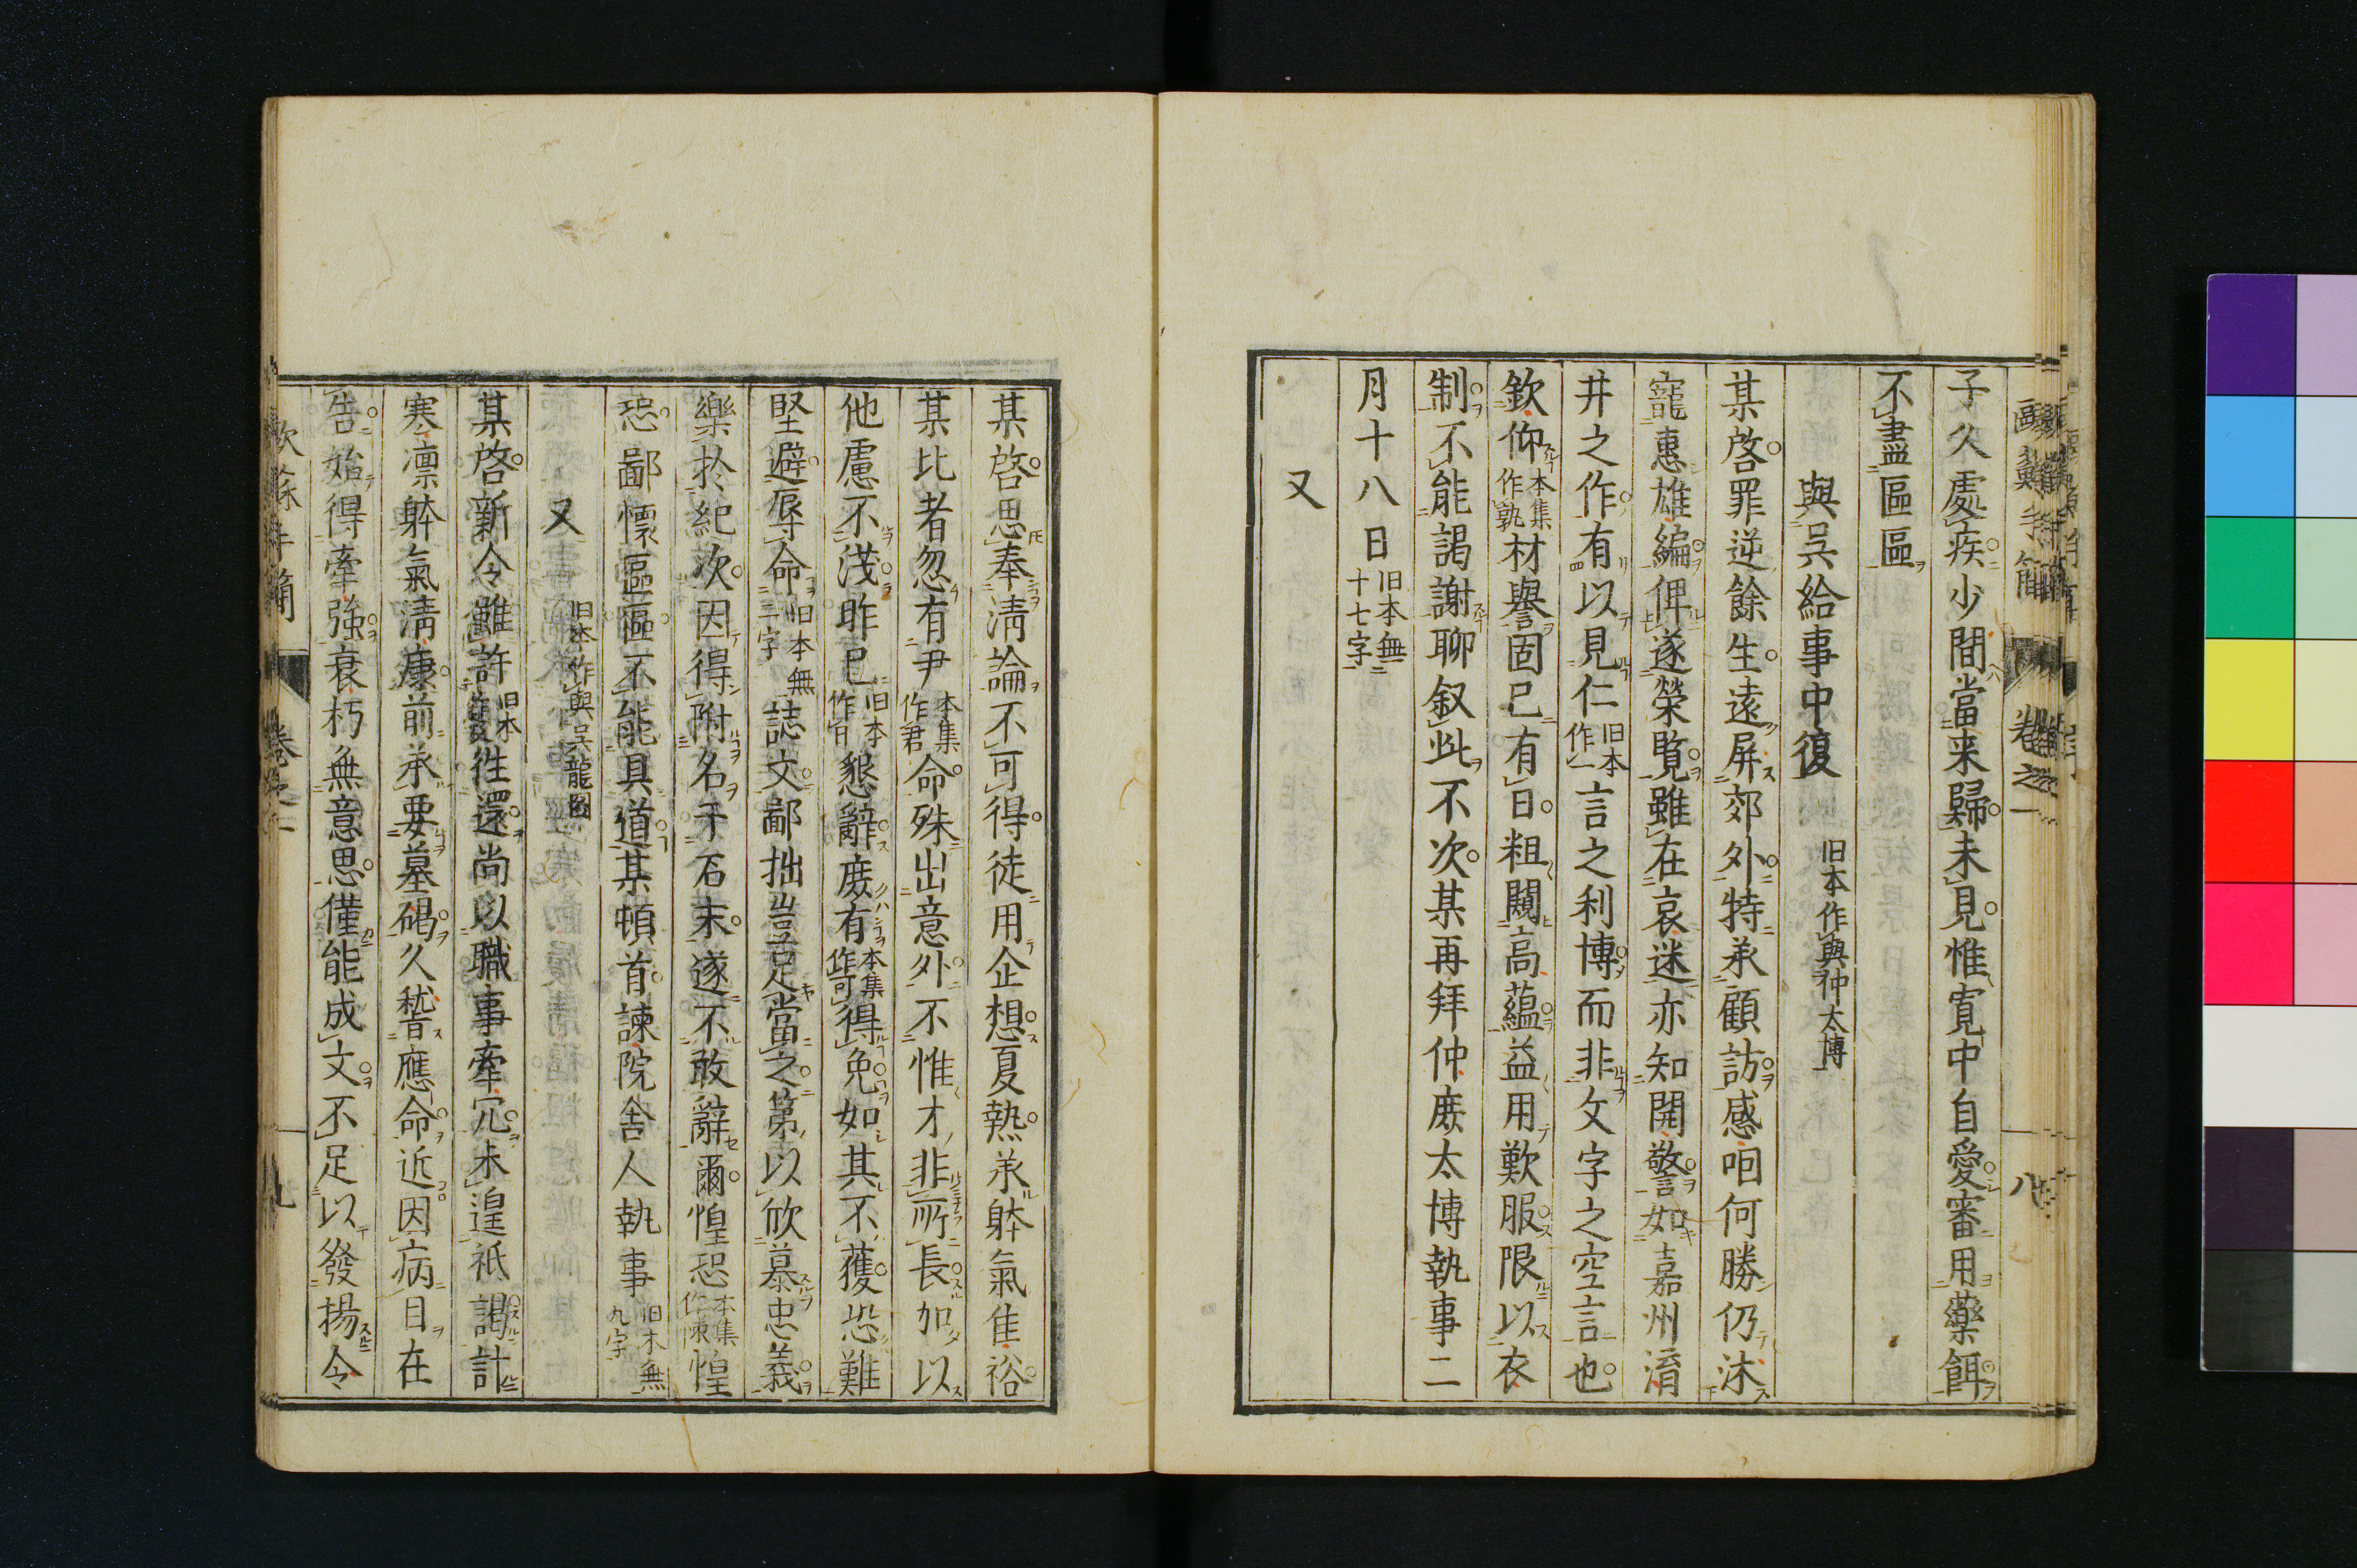 子久處疾少間當来歸未見惟寛中自愛審用藥餌
不盡區區
與呉給事中復 旧本作與仲太博
某啓罪逆餘生遠屏郊外特承顧訪感咽何勝仍沐
寵惠雄編俾遂榮覧雖在哀迷亦知開警如嘉州淯
井之作有以見仁 旧本作一 言之利博而非文字之空言也
欽仰 本集作孰 材譽固已有日粗闚高蘊益用歎服限以衣
制不能謁謝聊叙此不次某再拜仲庶太博執事二
月十八日 旧本無十七字
又
某啓思奉淸論不可得徒用企想夏熱承躰氣隹裕
某比者忽有尹 本集作君 命殊出意外不惟才非所長加以
他慮不淺昨已 旧本作日 懇辭庶有 本集作可 得免如其不獲恐難
堅避辱命 旧本無二字 誌文鄙拙豈足當之第以欣慕忠義
樂於紀次因得附名于石末遂不敢辭爾惶恐 本集作悚 惶
恐鄙懷區區不能具道某頓首諫院舎人執事 旧本無九字
又 旧本作與呉龍図
某啓新令雖許 旧本 徃還尚以職事牽冗未遑祇謁計
寒凛躰氣淸康前承要墓碣久嵆應命近因病日在
告始得牽強衰朽無意思僅能成文不足以發揚令